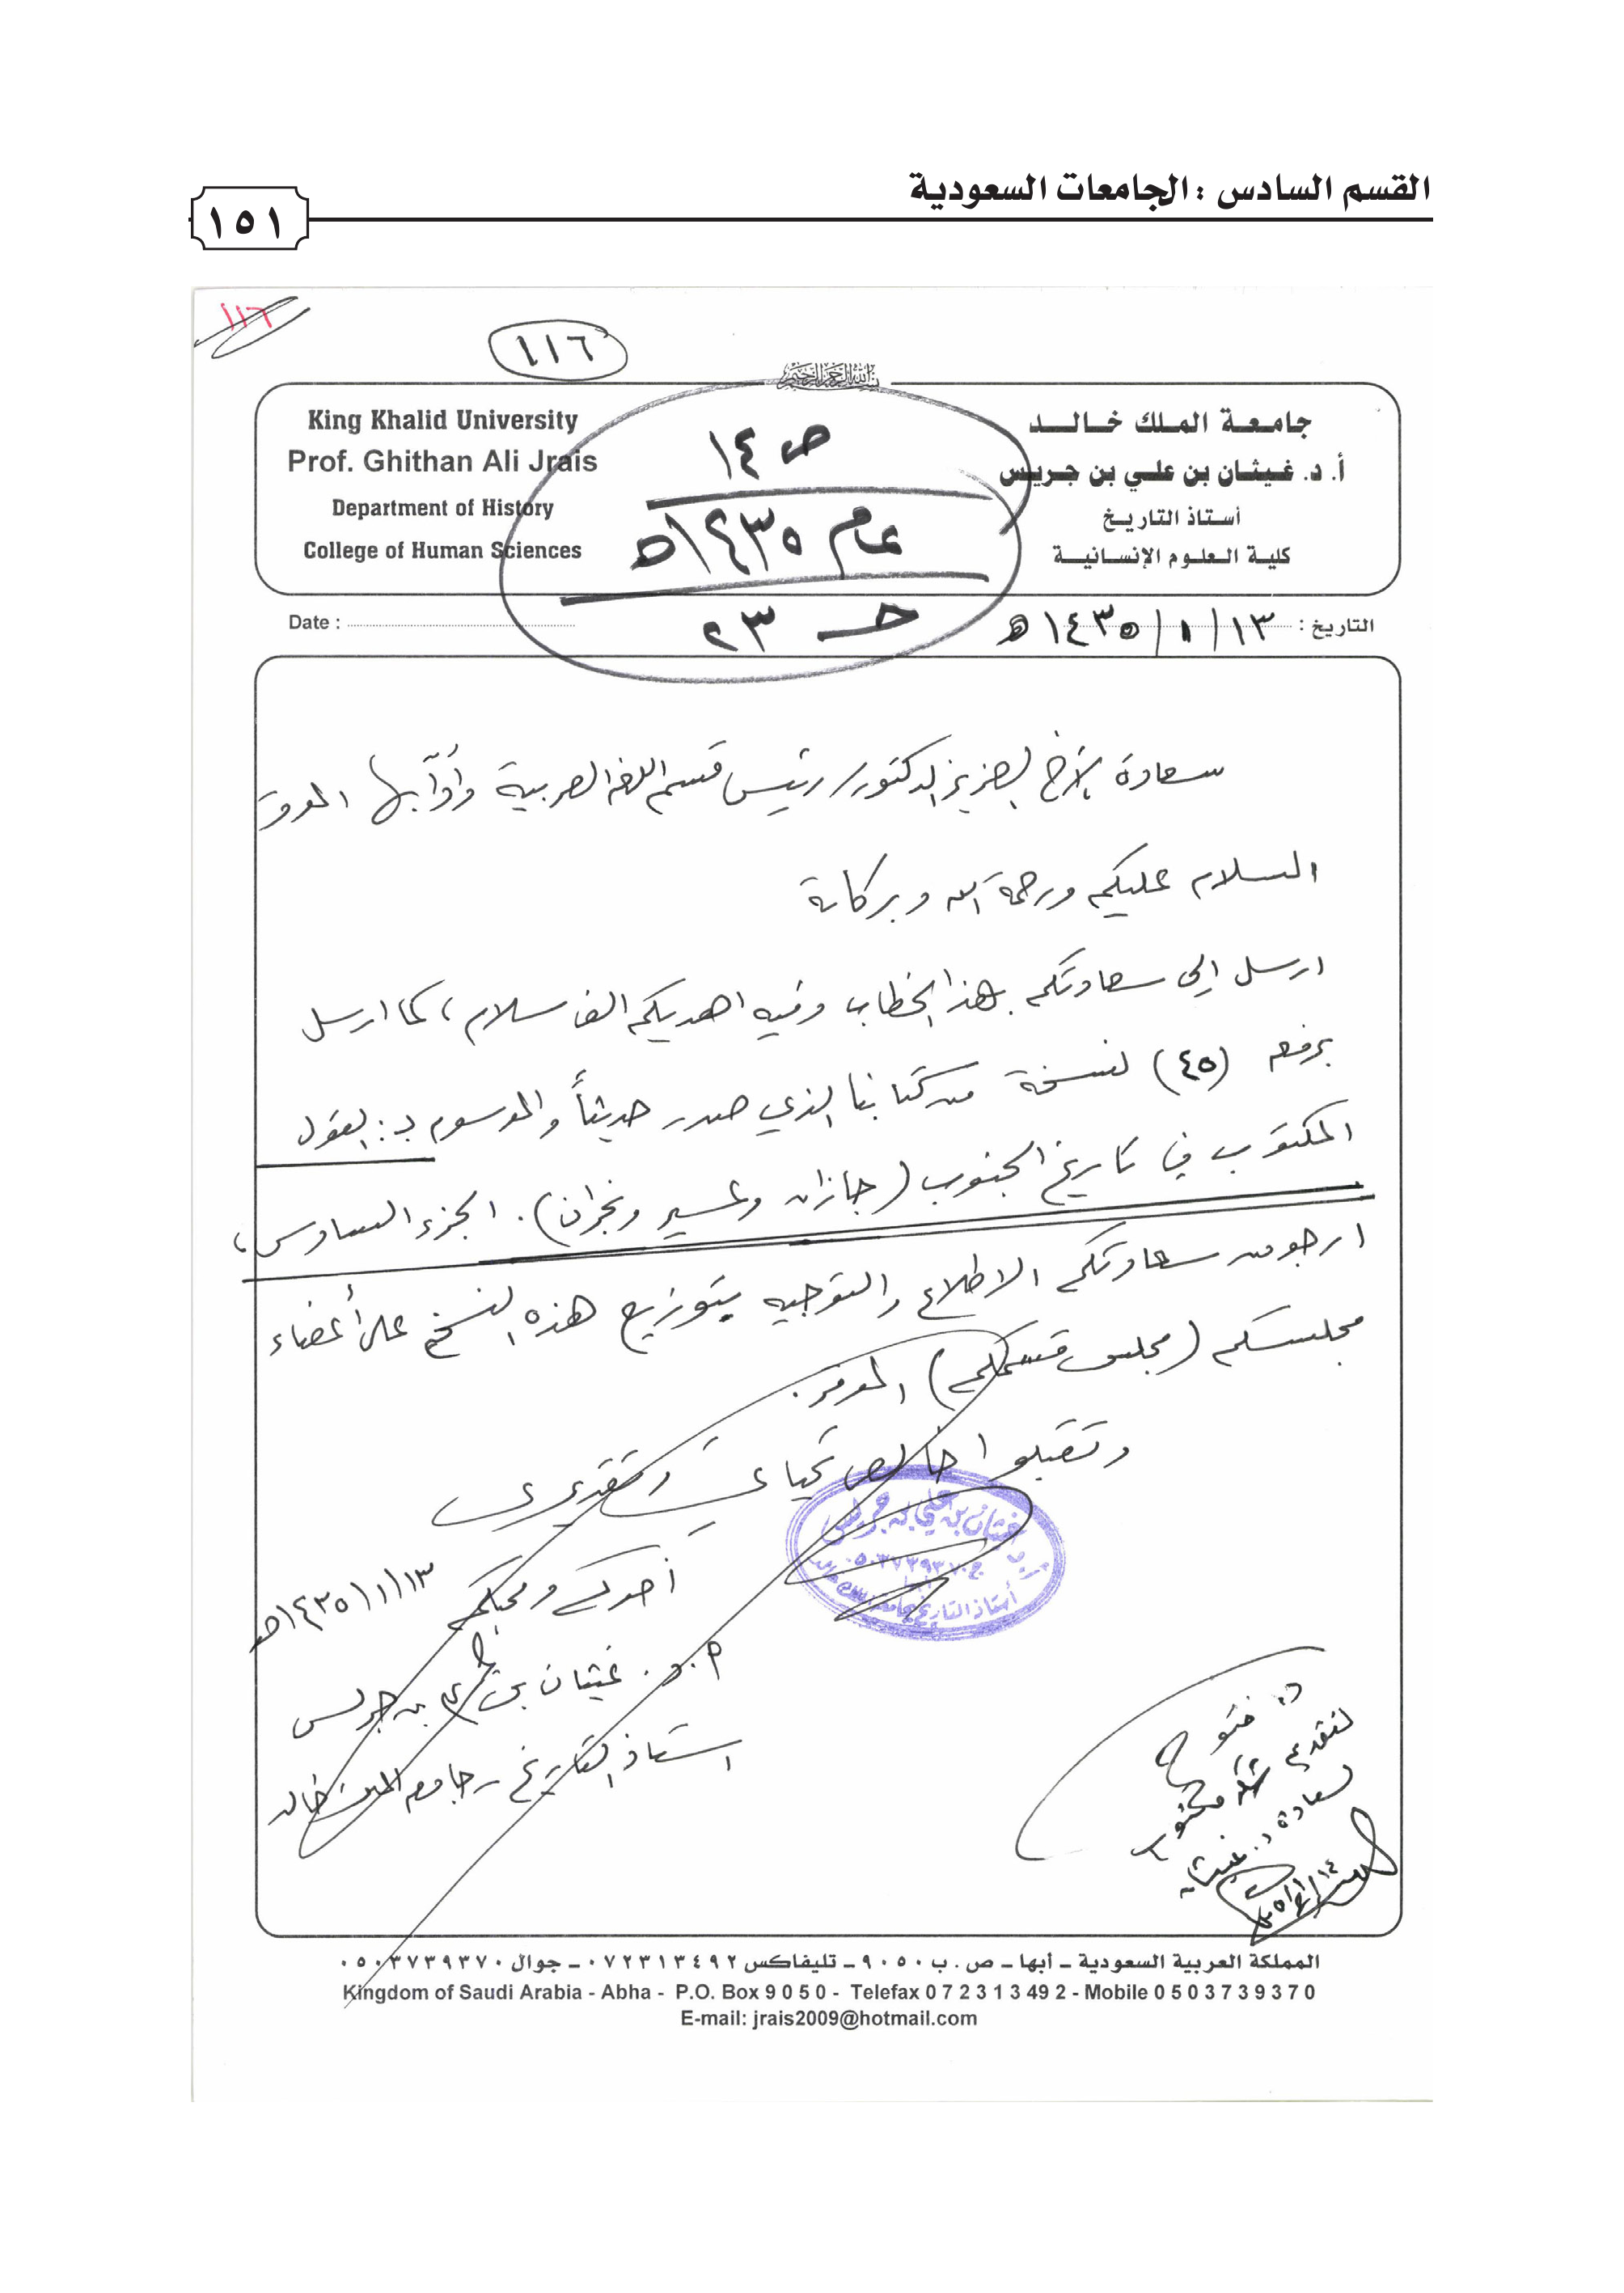 القسم السادس : الجامعات السعودية
١٥١
١١٦
١١٦
بسم الله الرحمن الرحيم
King Khalid University
Prof. Ghithan Ali Jrais
Department of History
College of Human Sciences
جامعة الملك خالد
أ. د. غيثان بن علي بن جريس
أستاذ التاريخ
كلية العلوم الإنسانية
ص ١٤
عام ١٤٣٥هـ
حـ ٢٣
Date :
التاريخ : ١٣ / ١ / ١٤٣٥هـ
سعادة الأخ العزيز الدكتور / رئيس قسم اللغة العربية وآدابها الموقر
السلام عليكم ورحمة الله وبركاته
ارسل الى سعادتكم بهذا الخطاب وفيه اهديكم الف سلام ، كما ارسل
برفقه (٤٥) نسخة من كتابنا الذي صدر حديثاً والموسوم بـ : القول
المكتوب في تاريخ الجنوب (جازان وعسير ونجران) . الجزء السادس ،
ارجو من سعادتكم الاطلاع والتوجيه بتوزيع هذه النسخ على أعضاء
مجلسكم (مجلس قسمكم) الموقر .
وتقبلوا خالص تحياتي وتقديري
أخوكم ومحبكم ١٣/١/١٤٣٥هـ
أ.د. غيثان بن علي بن جريس
استاذ التاريخ - جامعة الملك خالد
غيثان بن علي بن جريس
ج ٠٥٠٣٧٣٩٣٧٠
أستاذ التاريخ بجامعة الملك خالد
لتقديم
سعادة د. غيثان
المملكة العربية السعودية - أبها - ص . ب ٩٠٥٠ - تليفاكس ٠٧٢٣١٣٤٩٢ - جوال ٠٥٠٣٧٣٩٣٧٠
Kingdom of Saudi Arabia - Abha - P.O. Box 9 0 5 0 - Telefax 0 7 2 3 1 3 49 2 - Mobile 0 5 0 3 7 3 9 3 7 0
E-mail: jrais2009@hotmail.com